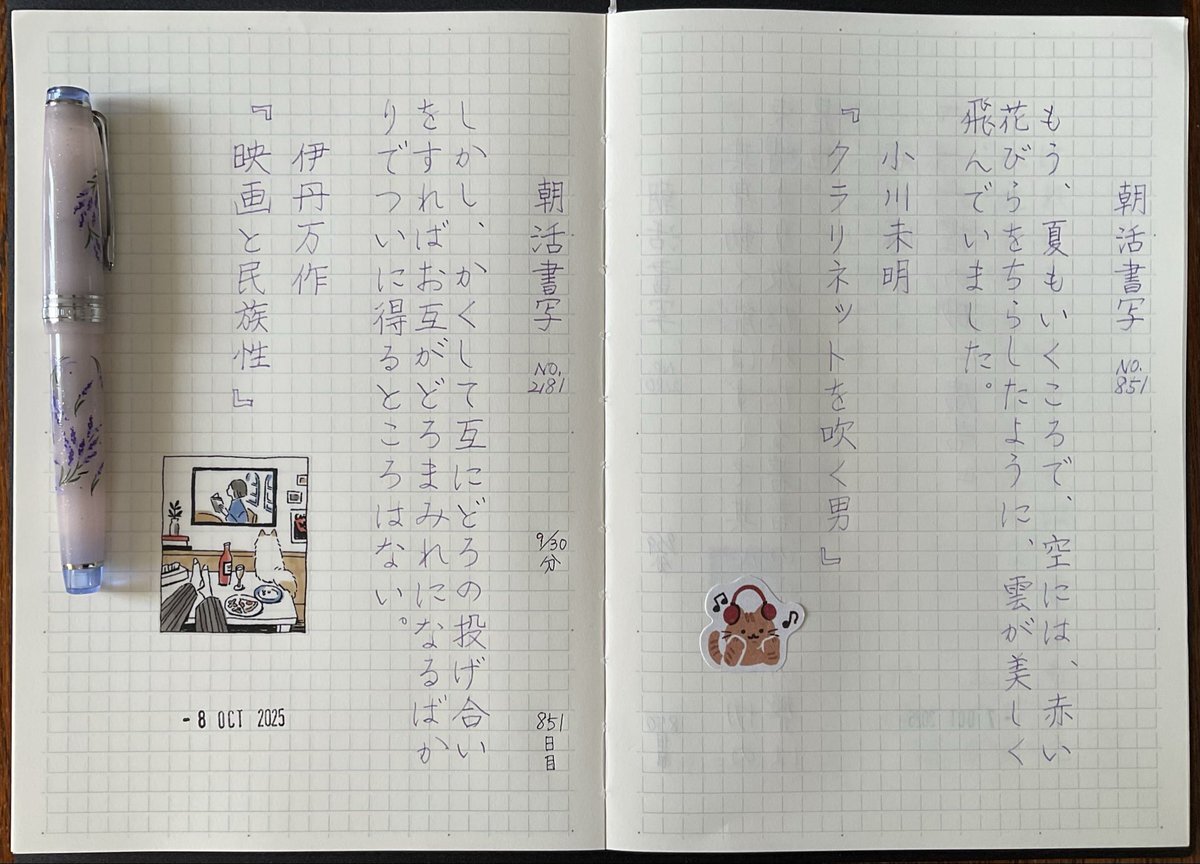 朝活書写
NO.
851
もう、夏もいくころで、空には、赤い
花びらをちらしたように、雲が美しく
飛んでいました。
小川未明
『クラリネットを吹く男』
朝活書写
NO.
2181
9/30
分
851
日目
しかし、かくして互にどろの投げ合い
をすればお互がどろまみれになるばか
りでついに得るところはない。
伊丹万作
『映画と民族性』
- 8 OCT 2025